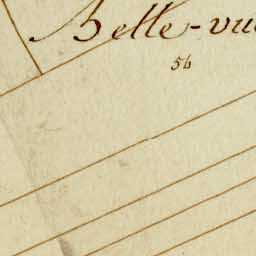 Belle-vue
56